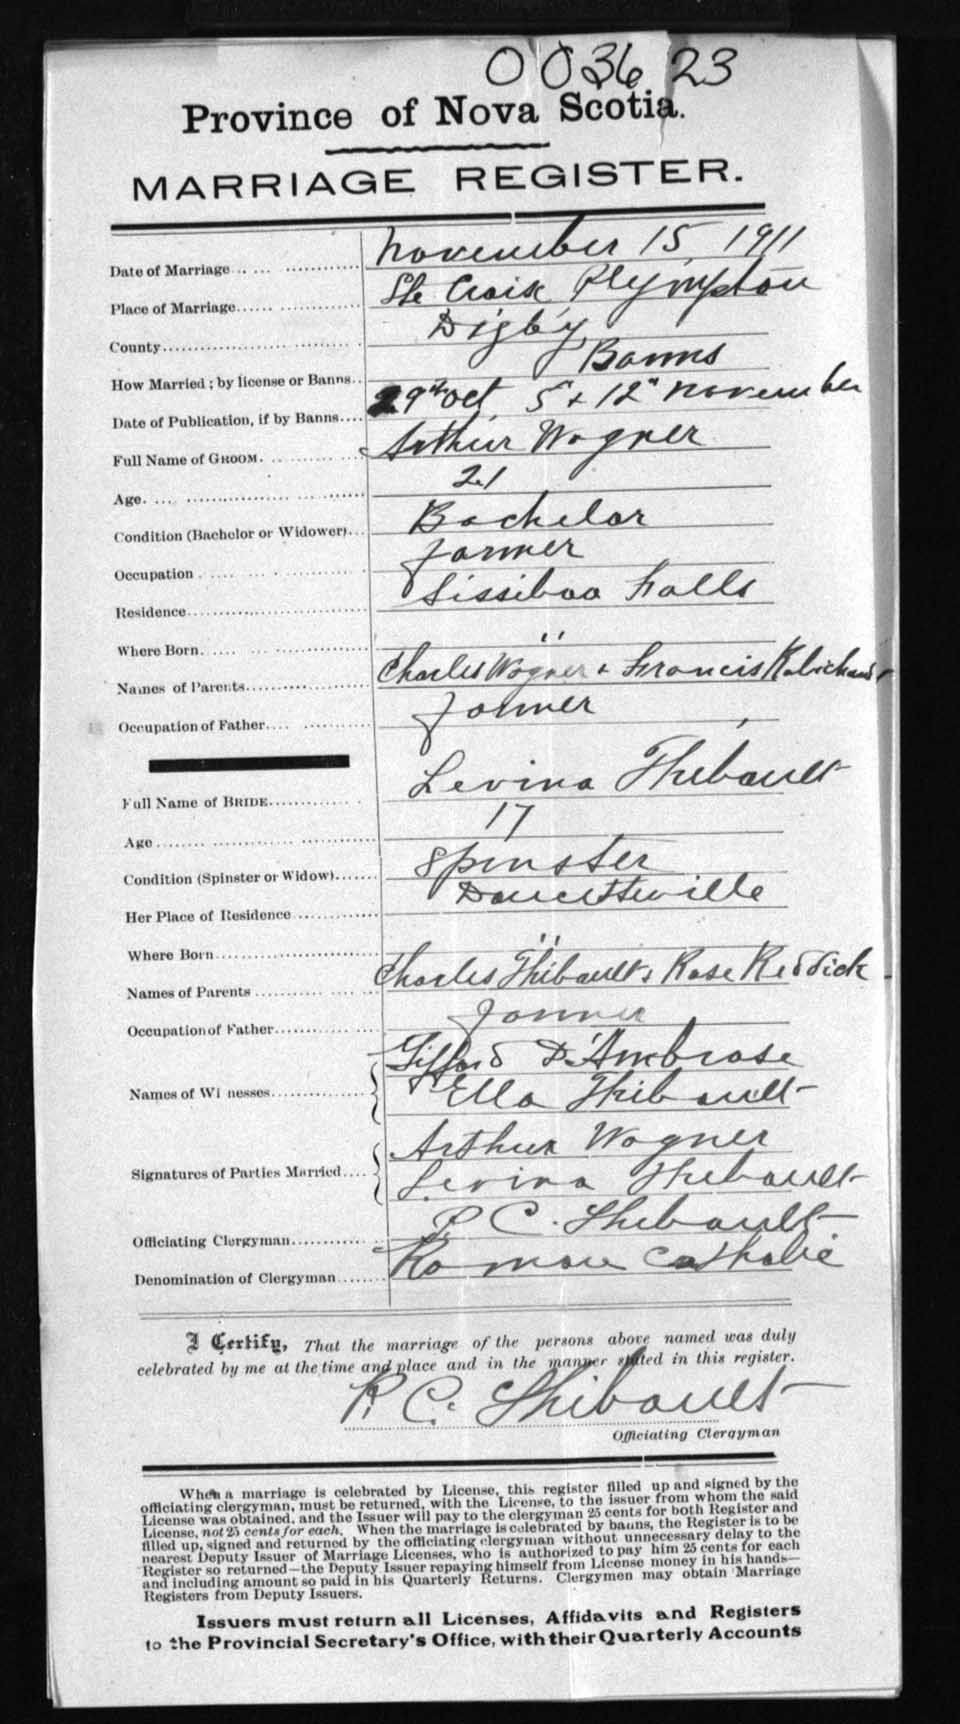 003623
Province of Nova Scotia.
MARRIAGE REGISTER.
Date of Marriage November 15, 1911
Place of Marriage Ste Croix Plympton
County Digby
How Married; by license or Banns Banns
Date of Publication, if by Banns 29th Oct, 5 & 12" November
Full Name of GROOM Arthur Wagner
Age 21
Condition (Bachelor or Widower) Bachelor
Occupation farmer
Residence Sissiboo Falls
Where Born "
Names of Parents Charles Wagner & Francis
Occupation of Father farmer
Full Name of BRIDE Levina Thibault
Age 17
Condition (Spinster or Widow) Spinster
Her Place of Residence Doucetteville
Where Born "
Names of Parents Charles Thibault & Rose Reddick
Occupation of Father farmer
Names of Witnesses Gifford D'Ambrose
Ella Thibault
Signatures of Parties Married Arthur Wagner
Levina Thibault
Officiating Clergyman P. C. Thibault
Denomination of Clergyman Roman Catholic
I Certify, That the marriage of the persons above named was duly
celebrated by me at the time and place and in the manner stated in this register.
P. C. Thibault
Officiating Clergyman
When a marriage is celebrated by License, this register filled up and signed by the
officiating clergyman, must be returned, with the License, to the issuer from whom the said
License was obtained, and the Issuer will pay to the clergyman 25 cents for both Register and
License, not 25 cents for each. When the marriage is celebrated by banns, the Register is to be
filled up, signed and returned by the officiating clergyman without unnecessary delay to the
nearest Deputy Issuer of Marriage Licenses, who is authorized to pay him 25 cents for each
Register so returned—the Deputy Issuer repaying himself from License money in his hands—
and including amount so paid in his Quarterly Returns. Clergymen may obtain Marriage
Registers from Deputy Issuers.
Issuers must return all Licenses, Affidavits and Registers
to the Provincial Secretary's Office, with their Quarterly Accounts